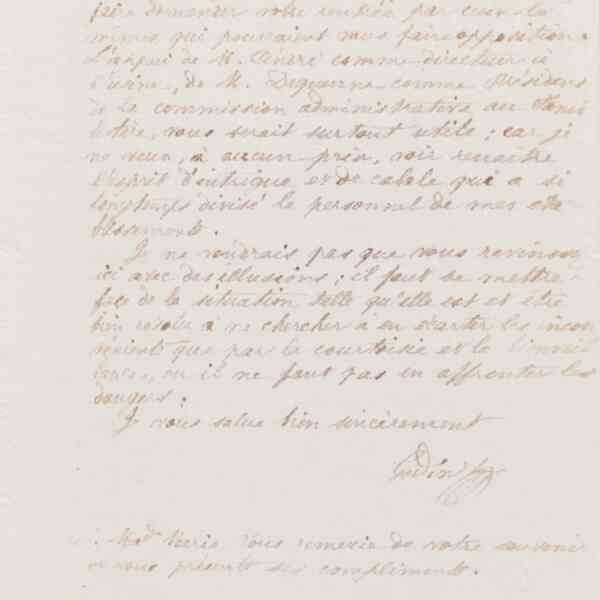 faire demander votre rentrée par ceux là
mêmes qui pouvaient vous faire opposition.
L'appui de M. comme directeur de
l'usine, de M. Dequenne comme Président
de la commission administrative au Famis
tère, vous serait surtout utile ; car je
ne veux, à aucun prix, voir renaître
l'esprit d'intrigue et de cabale qui a si
longtemps divisé le personnel de mes éta
blissements.
Je ne voudrais pas que vous revinssiez
ici avec des illusions ; il faut se mettre
face de la situation telle qu'elle est et être
bien résolu à ne chercher à en écarter les incon
vénients que par la courtoisie et la bienveil
lance, ou il ne faut pas en affronter les
dangers.
Je vous salue bien sincèrement
Godin
Mad. Marie vous remercie de votre souvenir
et vous présente ses compliments.